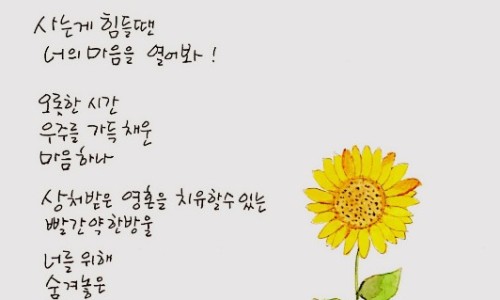 사는게 힘들땐
너의 마음을 열어봐!
오롯한 시간
우주를 가득 채운
마음하나
상처받은 영혼을 치유할수 있는
빨간약 한방울
너를 위해
숨겨놓은